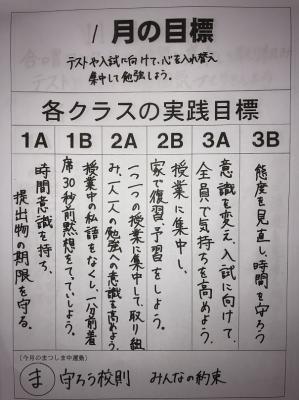 1月の目標
テストや入試に向けて、心を入れ替え
集中して勉強しよう。
各クラスの実践目標
1A
1B
2A
2B
3A
3B
時間意識を持ち、
提出物の期限を守る。
授業中の私語をなくし、一分前着
席30秒前黙想をてっていしよう。
一つ一つの授業に集中して、取り組
み、一人一人の勉強への意識を高めよう。
授業に集中し、
家で復習予習をしよう。
意識を変え、入試に向けて、
全員で気持ちを高めよう。
態度を見直し、時間を守ろう
(今月のまつしま中運動)
ま 守ろう校則 みんなの約束